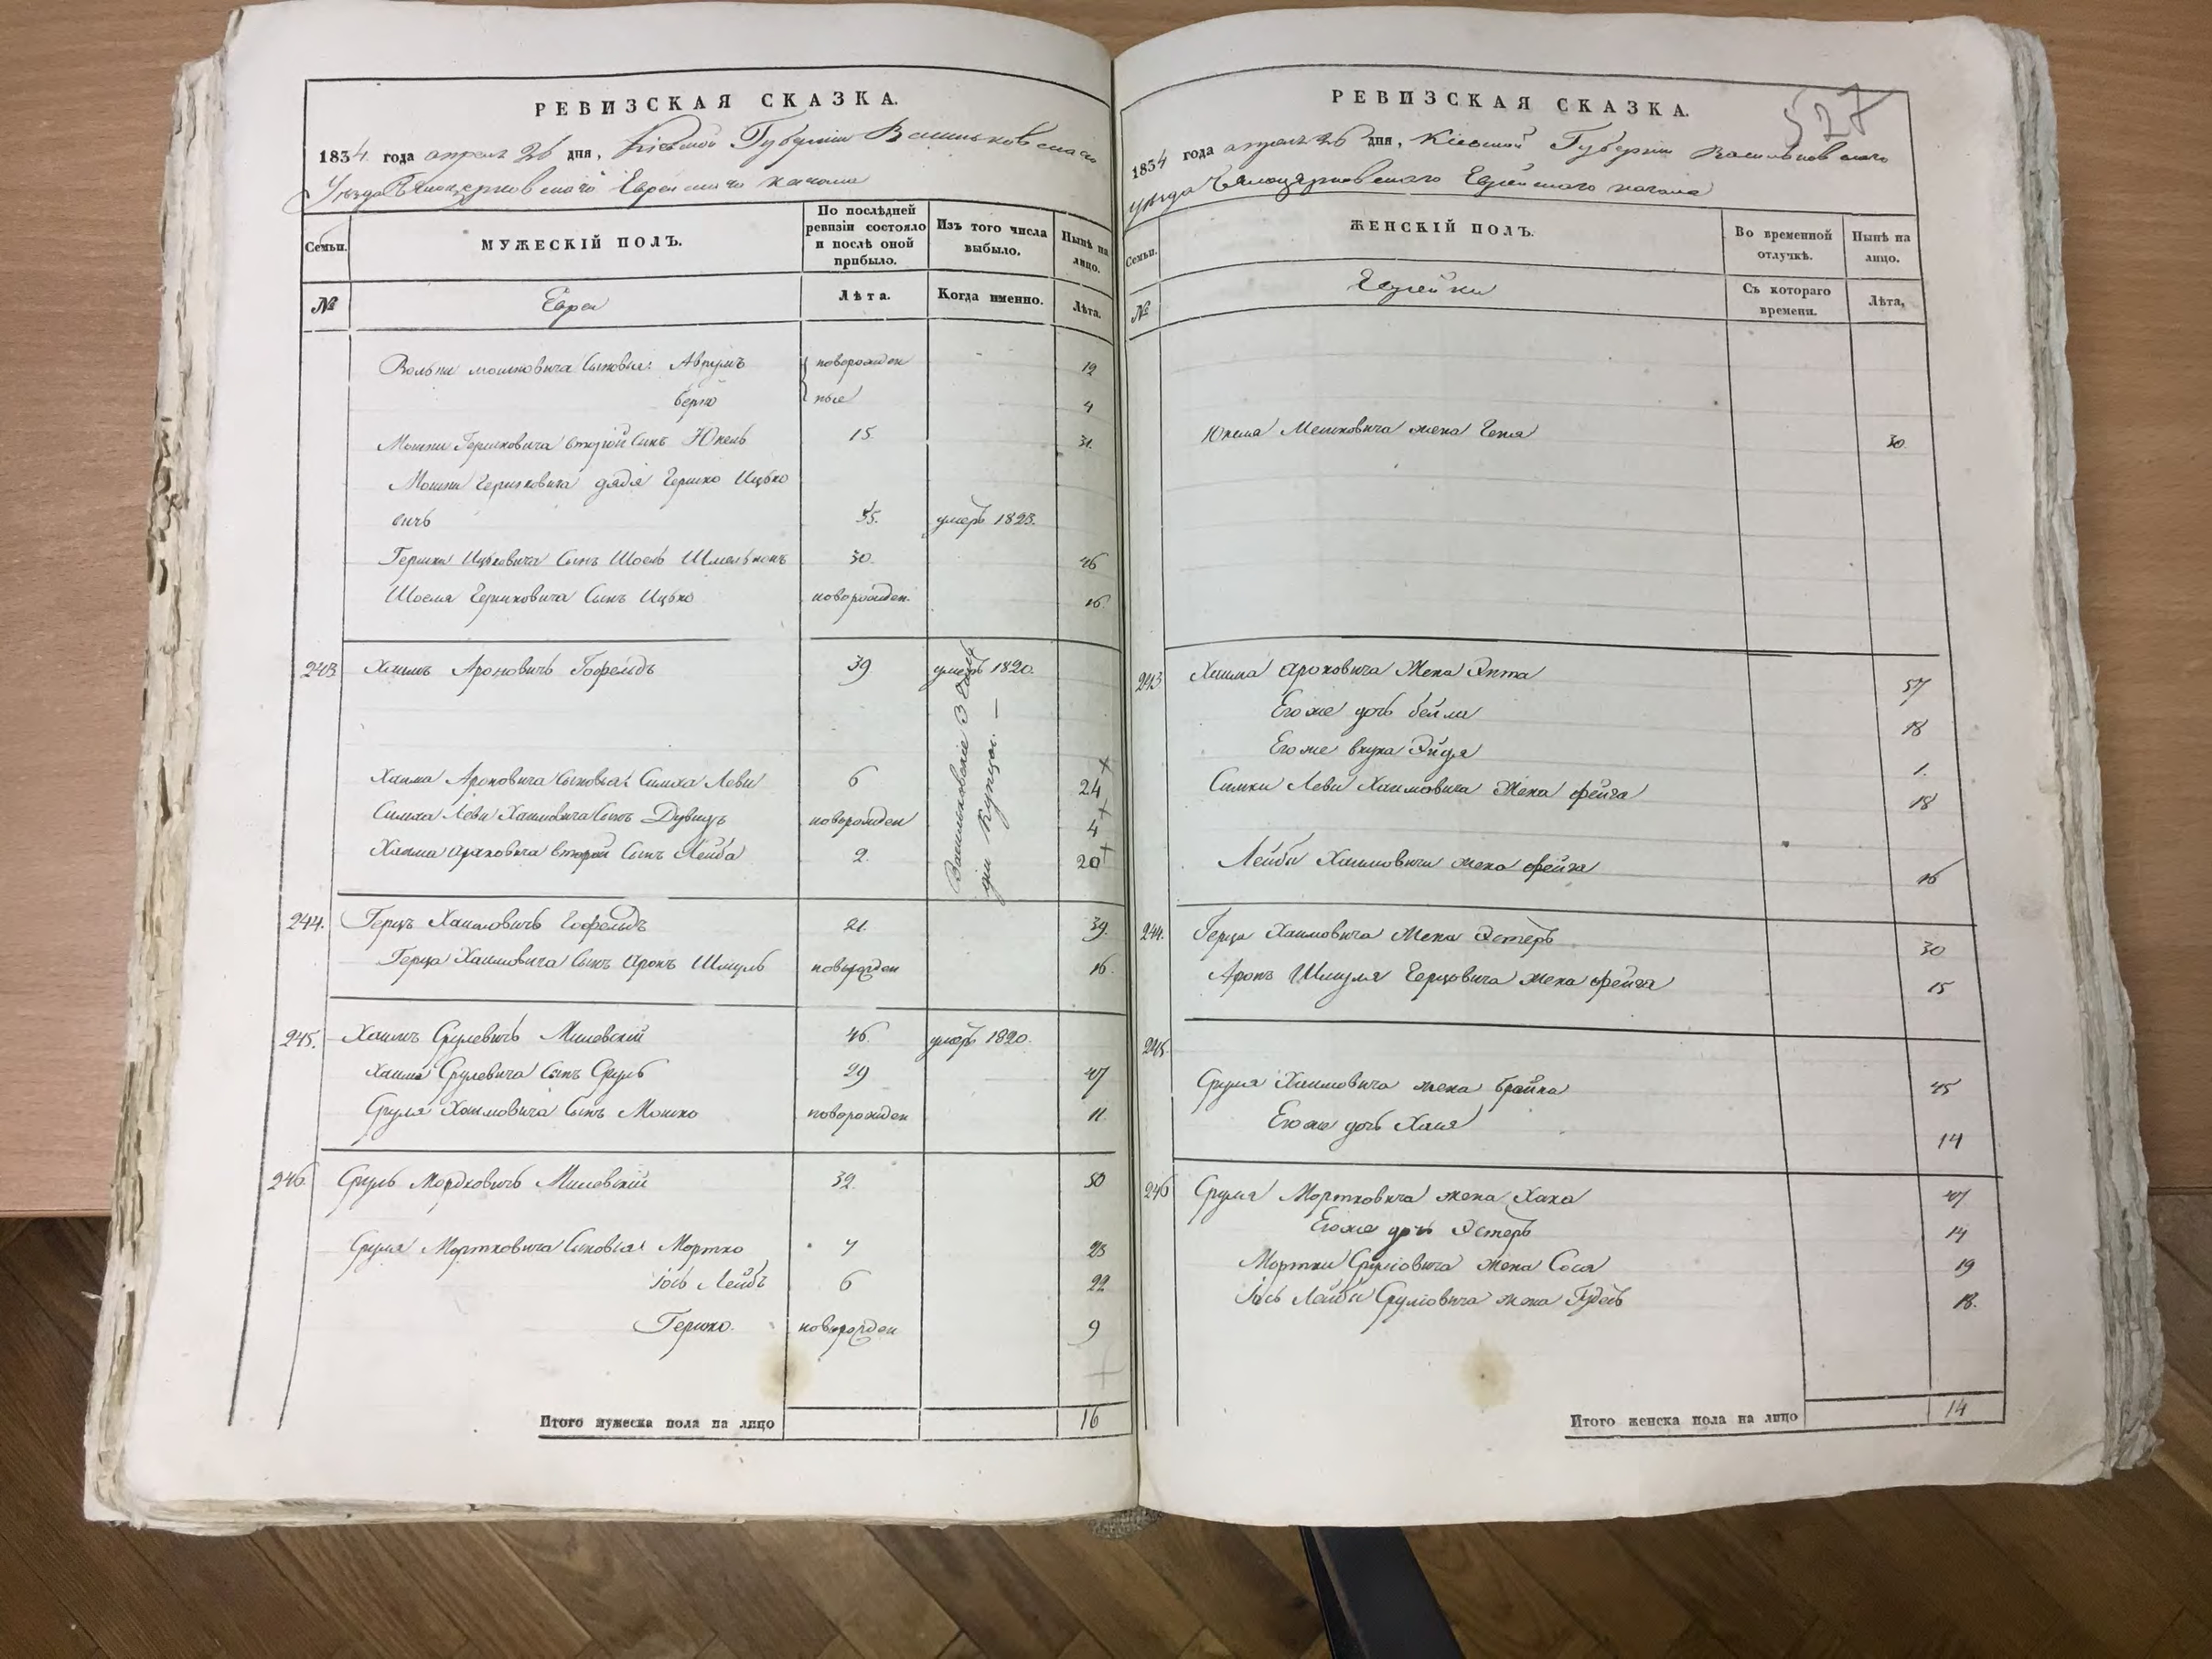 РЕВИЗСКАЯ СКАЗКА.
1834 года апреля 26 дня, Кіевской Губерніи Васильковскаго
Уезда Белоцерковскаго Еврейскаго кагала
Семьи.
МУЖЕСКІЙ ПОЛЪ.
По послѣдней ревизіи состояло и послѣ оной прибыло.
Изъ того числа выбыло.
Нынѣ на лицо.
№
Евреи
Лѣта.
Когда именно.
Лѣта.
Вольки Мошковича Сыновья: Аврумъ новорожден 12
Берко ные 4
Мошки Гершковича второй сынъ Юкель 15 31.
Мошки Гершковича дядя Гершко Ицько
вичъ 55. умеръ 1823.
Гершки Ицковича Сынъ Шоель Шмельконъ 30. 46
Шоеля Гершковича Сынъ Ицько новорожден. 16.
243 Хаимъ Ароновичъ Гофельдъ 39 умеръ 1820.
Хаима Ароновича Сыновья: Симха Леви 6 24
Симха Леви Хаимовича Сынъ новорожден 4
Хаима Ароновича второй Сынъ Лейба 2. 20
Васильковскіе 3 Гиль
діи Купцы. —
244. Герцъ Хаимовичъ Гофельдъ 21. 39.
Герца Хаимовича Сынъ Аронъ Шмуль новорожден 16.
245. Хаимъ Срулевичъ Милевскій 46. умеръ 1820.
Хаима Срулевича Сынъ Сруль 29 47
Сруля Хаимовича Сынъ Мошко новорожден 11.
246. Сруль Мордковичъ Милевскій 32. 50
Сруля Мортковича Сыновья: Мортко 7 23
Іось Лейбъ 6 22
Гершко. новорожден 9
Итого мужеска пола на лицо 16
527
РЕВИЗСКАЯ СКАЗКА.
1834 года апреля 26 дня, Кіевской Губерніи Васильковскаго
уезда Белоцерковскаго Еврейскаго кагала
Семьи.
ЖЕНСКІЙ ПОЛЪ.
Во временной отлучкѣ.
Нынѣ на лицо.
№
Еврейки
Съ котораго времени.
Лѣта,
Юкеля Мошковича жена Геня 30.
243 Хаима Ароновича Жена Энта 57
Его же дочь Бейла 18
Его же внука Эйдя 1.
Симхи Леви Хаимовича Жена Фейга 18
Лейбы Хаимовича жена Фейга 16
244. Герца Хаимовича Жена Эстеръ 30
Аронъ Шмуля Герцовича жена Фейга 15
245.
Сруля Хаимовича жена Брайна 45
Его же дочь Ханя 14
246 Сруля Мортковича жена Хана 47
Его же дочь Эстеръ 14
Мортки Сруліовича Жена Сося 19
Іось Лейбы Сруліовича жена Гудесь 18.
Итого женска пола на лицо 14